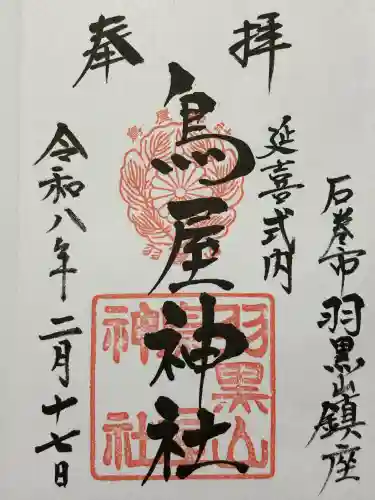 奉拝
石巻市羽黒山鎮座
延喜式内
鳥屋神社
令和八年二月十七日
羽黒山
鳥屋
神社